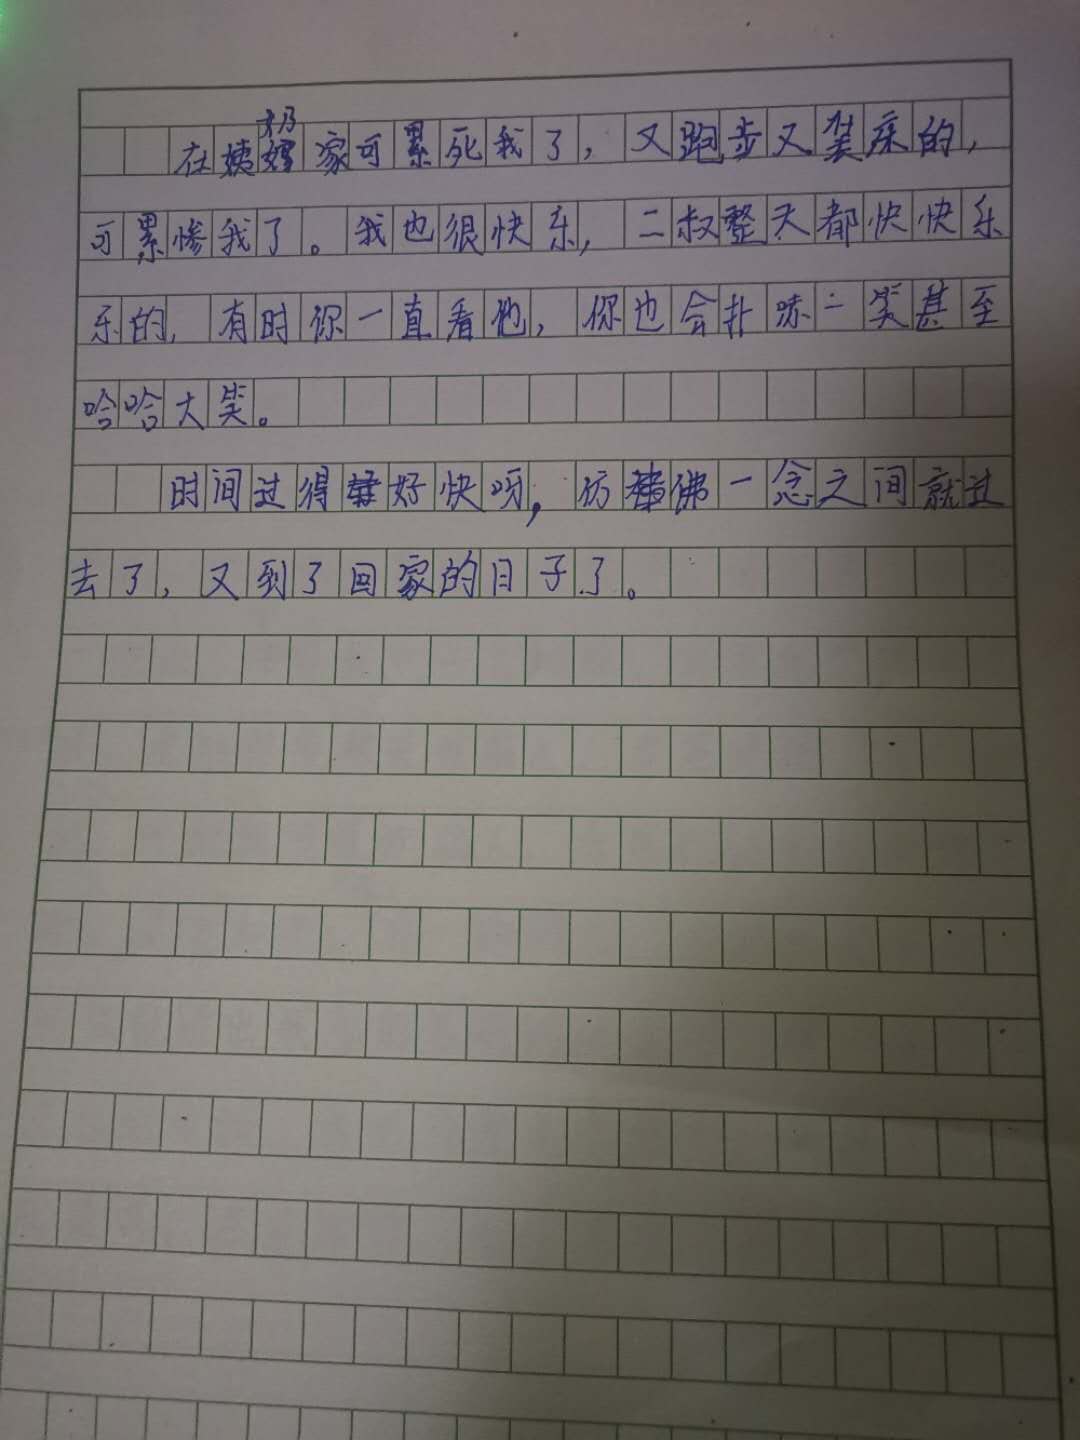 在姨奶家可累死我了，又跑步又装床的，
可累惨我了。我也很快乐，二叔整天都快快乐
乐的，有时你一直看他，你也会扑哧一笑甚至
哈哈大笑。
时间过得好快呀，仿佛一念之间就过
去了，又到了回家的日子了。